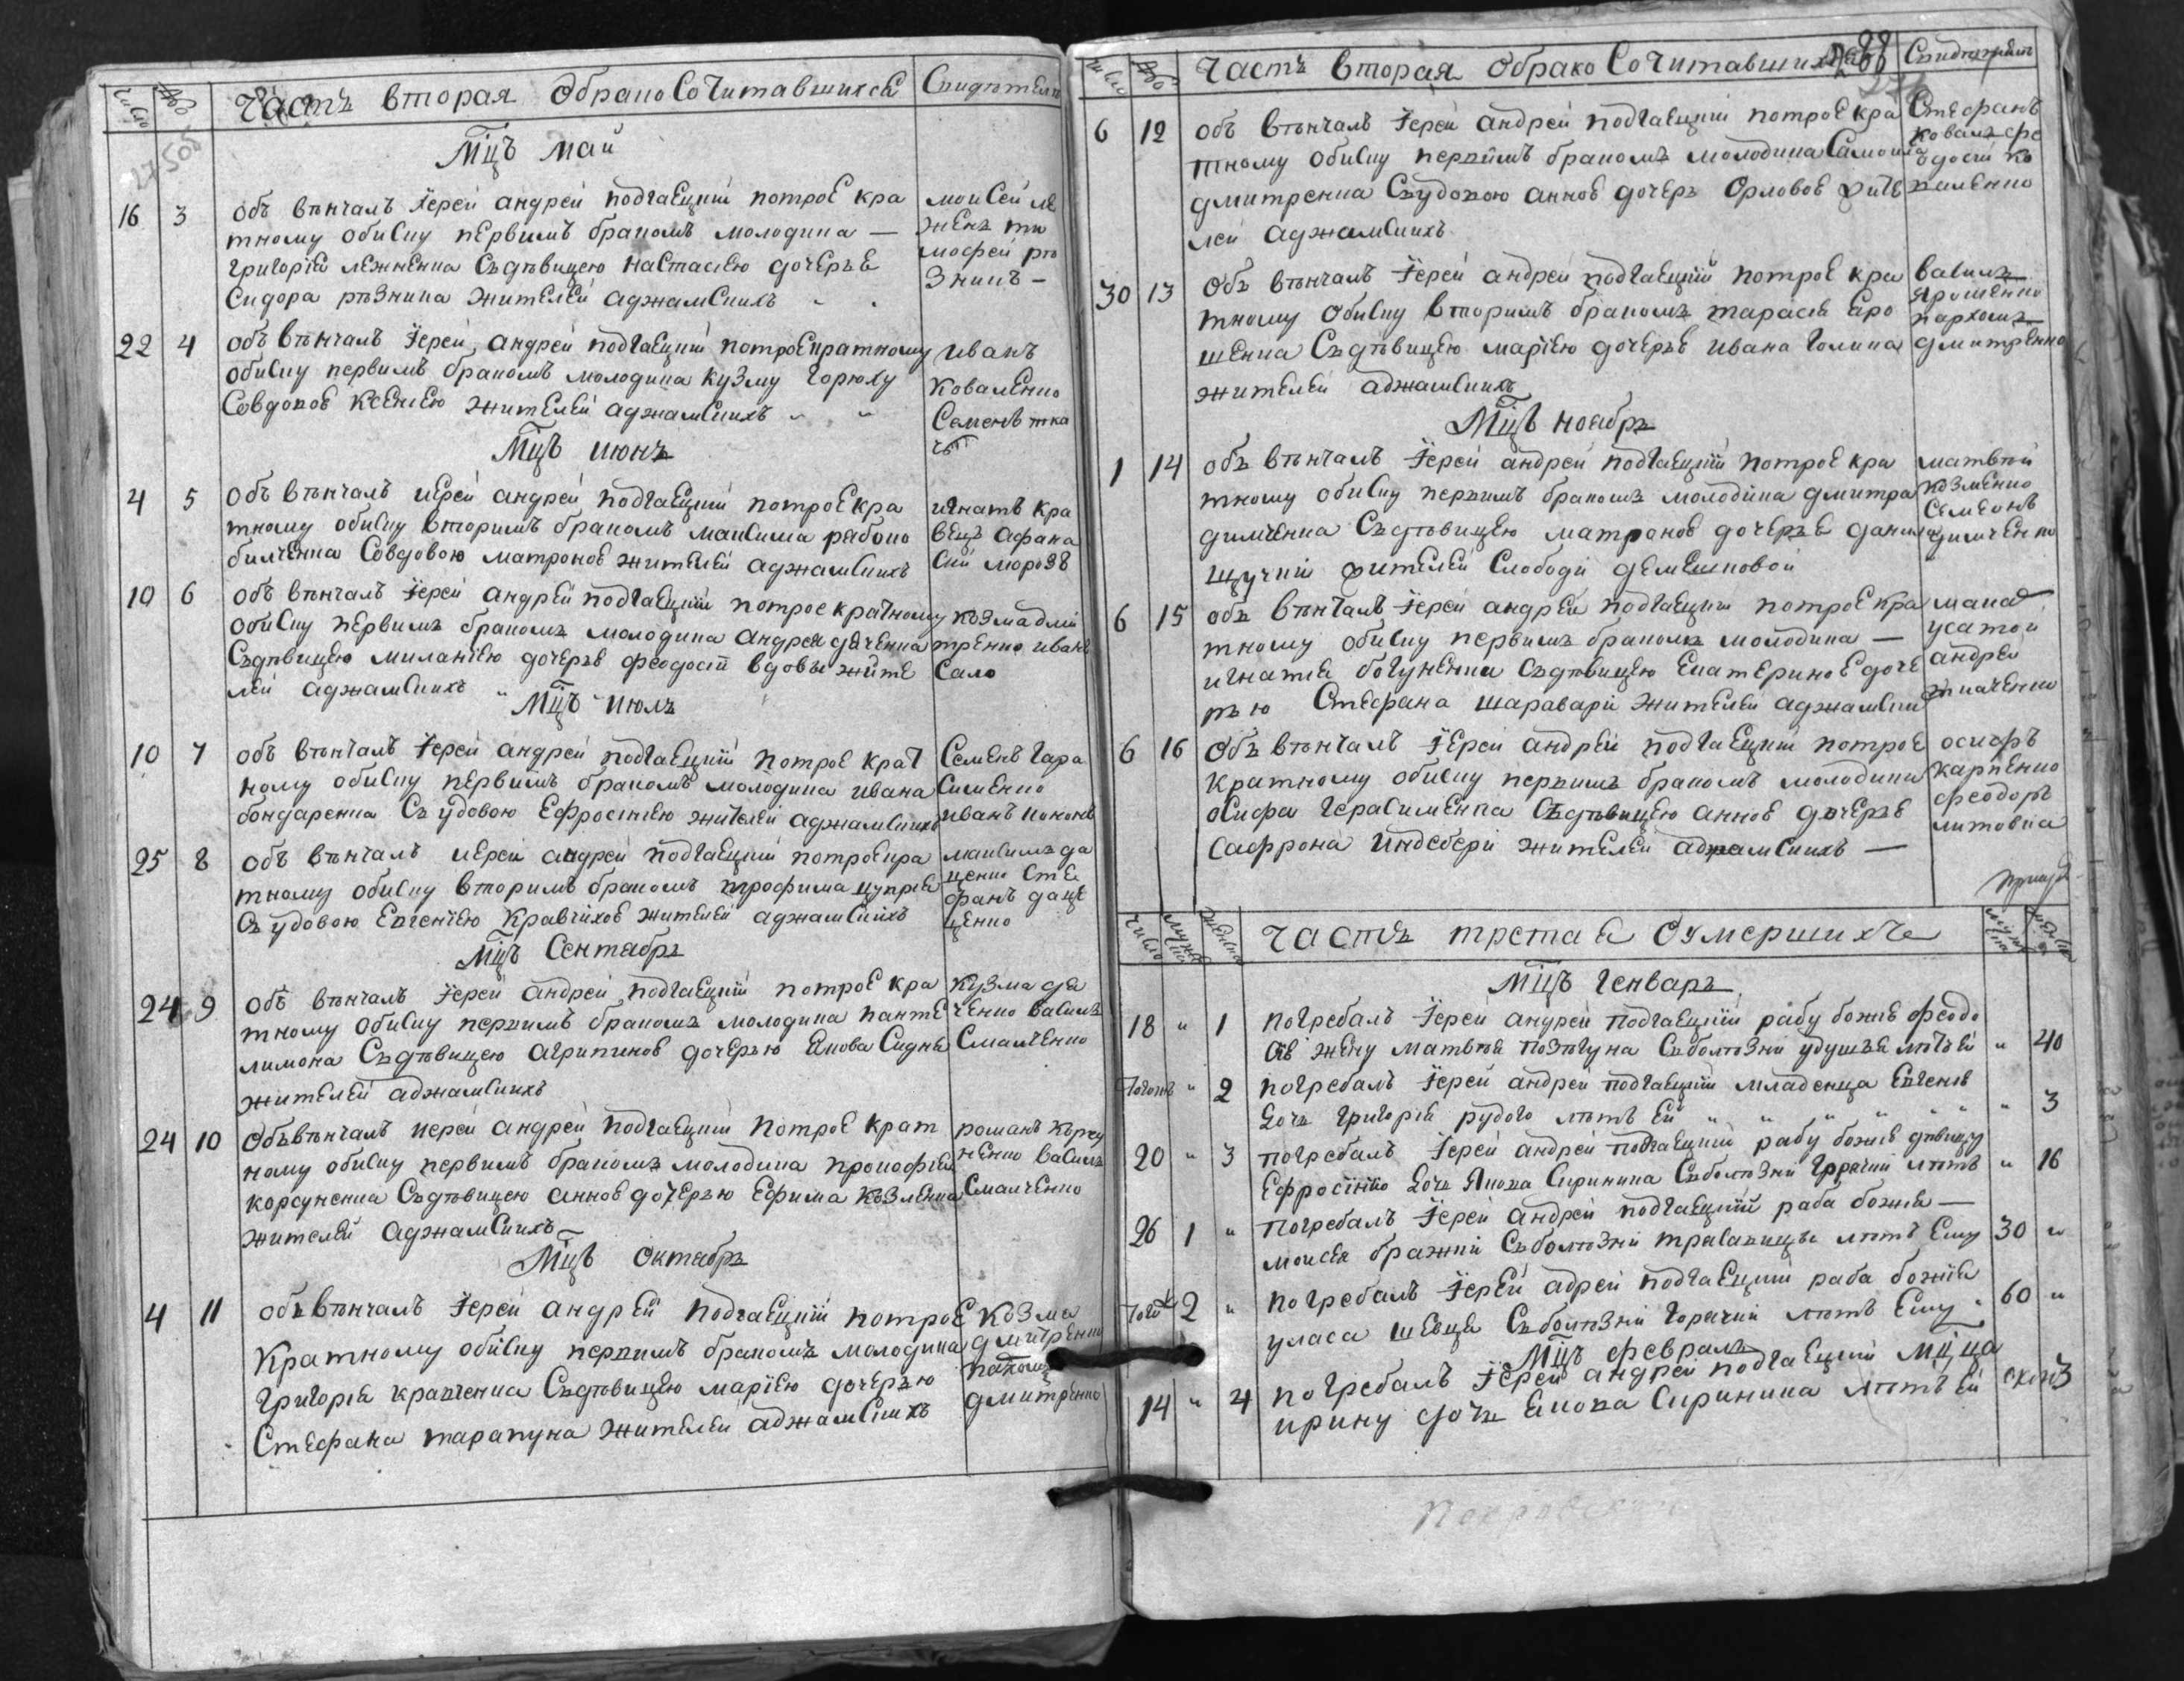 число
часть вторая обрако Сочитавшихся
Свидѣтели
Мцъ май
16 3 объ вѣнчалъ Іерей андрей подгаецкій потрое кра
тному обиску первимъ бракомъ молодика —
григорія лежненка Съдѣвицею настасіею дочерѣе
Сидора рѣзника жителей аджамскихъ
моисей ле
женъ ти
мофей рѣ
зникъ —
22 4 объ вѣнчалъ Іерей андрей подгаецкій потроекратному
обиску первимъ бракомъ молодика кузму горюху
Совдовое Ксеніею жителей аджамскихъ
иванъ
коваленко
Семенъ тка
чъ
Мцъ июнь
4 5 объ вѣнчалъ иерей андрей подгаецкій потрое кра
тному обиску вторимъ бракомъ максима рабоко
билченка Совдовою матроное жителей аджамскихъ
игнатъ кра
вецъ афана
Сій морозъ
10 6 объ вѣнчалъ Іерей андрей подгаецкій потрое кратному
обиску первимъ бракомъ молодика андрея дяченка
Съдѣвицею миланіею дочерѣе феодосіи вдовы жите
лей аджамскихъ
козма дми
тренко иванъ
Сало
Мцъ июль
10 7 объ вѣнчалъ Іерей андрей подгаецкій потрое крат
ному обиску первимъ бракомъ молодика ивана
бондаренка Съ удовою Ефросиніею жителей аджамскихъ
Семенъ гара
Сименко
иванъ
25 8 объ вѣнчалъ иерей андрей подгаецкій потроекра
тному обиску вторимъ бракомъ трофима цуприя
Съ удовою Евгеніею кравчихое жителей аджамскихъ
максимъ да
ценко Сте
фанъ даце
ценко
Мцъ Сентябрь
24 9 объ вѣнчалъ Іерей андрей подгаецкій потрое кра
тному обиску первимъ бракомъ молодика панте
лимона Съдѣвицею агрипиное дочерью якова Сидня
жителей аджамскихъ
кузма дя
ченко василь
Смалченко
24 10 объвѣнчалъ иерей андрей подгаецкій потрое крат
ному обиску первимъ бракомъ молодика прокофія
корсуненка Съдѣвицею анное дочерью Ефима козленка
жителей аджамскихъ
романъ корсу
ненко василь
Смалченко
Мцъ октябрь
4 11 объвѣнчалъ Іерей андрей подгаецкій потрое
кратному обиску первимъ бракомъ молодика
григорія кравченка Съдѣвицею маріею дочерью
Стефана тарапуна жителей аджамскихъ
козма
дмитренко
пархомъ
дмитренко
число
часть вторая обрако Сочитавшихся
88
Свидѣтели
6 12 объ вѣнчалъ Іерей андрей подгаецкій потрое кра
тному обиску первимъ бракомъ молодика Самоила
дмитренка Съудовою анное дочерь орловое жите
лей аджамскихъ
Стефанъ
коваль фе
одосій ко
валенко
30 13 объ вѣнчалъ Іерей андрей подгаецкій потрое кра
тному обиску вторимъ бракомъ тарасія Яро
шенка Съдѣвицею маріею дочерѣе ивана голика
жителей аджамскихъ
василь
Ярошенко
пархомъ
дмитренко
Мцъ ноябрь
1 14 объ вѣнчалъ Іерей андрей подгаецкій потрое кра
тному обиску первимъ бракомъ молодика дмитра
димченка Съдѣвицею матроное дочерѣе данила
щучкій жителей Слободи демешковой
матвѣй
козменко
Семеонъ
димченко
6 15 объ вѣнчалъ Іерей андрей подгаецкій потрое кра
тному обиску первимъ бракомъ молодика —
игнатія богуненка Съдѣвицею Екатериное доче
рью Стефана шаравари жителей аджамских
усатой
андрей
ткаченко
6 16 объ вѣнчалъ Іерей андрей подгаецкій потрое
кратному обиску первимъ бракомъ молодика
осифа герасименка Съдѣвицею анное дочерѣе
Сафрона индебери жителей аджамскихъ —
осифъ
карпенко
феодоръ
литовка
число
часть третая оумершихъ
Мцъ генварь
18 " 1 погребалъ Іерей андрей подгаецкій рабу божію феодо
Сію жену матвѣя позигуна Съболѣзни удушья лѣтъ ей " 40
тогожъ " 2 погребалъ Іерей андрей подгаецкій младенца Евгенію
дочь григорія рудого лѣтъ ей " 3
20 " 3 погребалъ Іерей андрей подгаецкій рабу божію дѣвицу
Ефросинію дочь Якова Скрипника Съболѣзни горячки лѣтъ " 16
26 1 " погребалъ Іерей андрей подгаецкій раба божія —
моисея бражкій Съболѣзни трасавицы лѣтъ Ему 30 "
того 2 " погребалъ Іерей адрей подгаецкій раба божія
уласа шевця Съболѣзни горячки лѣтъ Ему 60 "
Мцъ февраль
14 " 4 погребалъ Іерей андрей подгаецкій мл҃дца
ирину дочь якова Скрипника лѣтъ ей 3